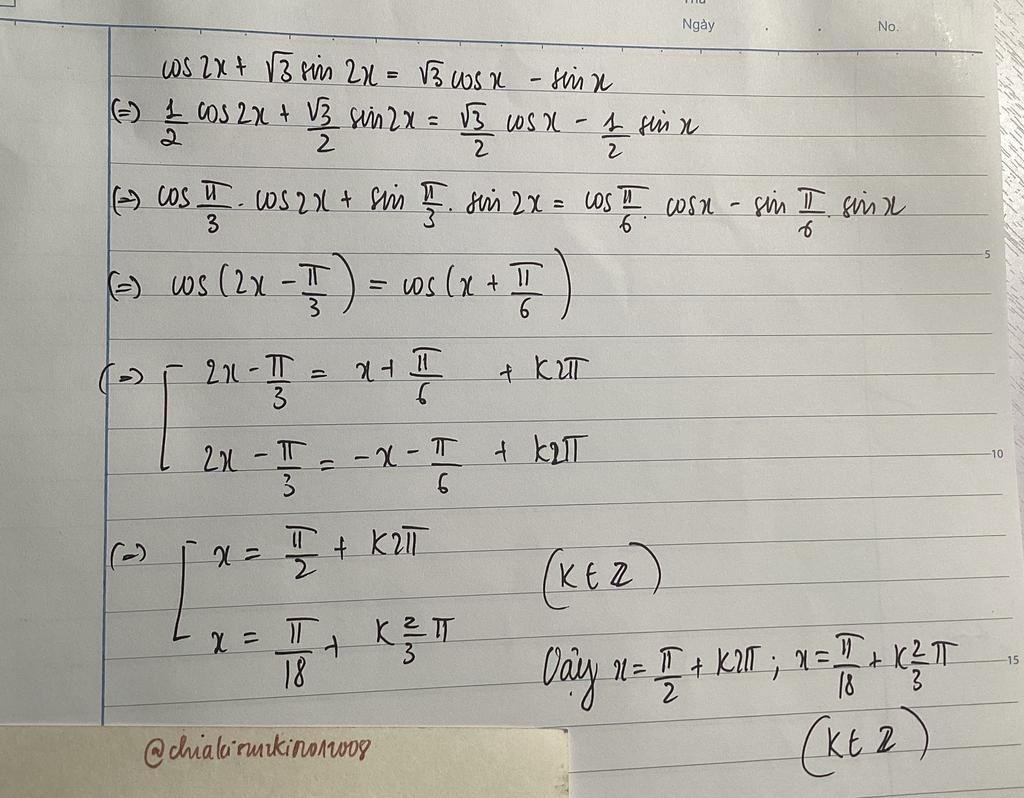 Thu
Ngày . . No.
cos 2x + √3 sin 2x = √3 cos x - sin x
(=) 1/2 cos 2x + √3/2 sin 2x = √3/2 cos x - 1/2 sin x
(=) cos π/3 . cos 2x + sin π/3 . sin 2x = cos π/6 . cos x - sin π/6 . sin x
5
(=) cos (2x - π/3) = cos (x + π/6)
(=) [ 2x - π/3 = x + π/6 + k2π
2x - π/3 = -x - π/6 + k2π
10
(=) [ x = π/2 + k2π
(k ∈ ℤ)
x = π/18 + k 2/3 π
Vậy x = π/2 + k2π ; x = π/18 + k 2/3 π
15
(k ∈ ℤ)